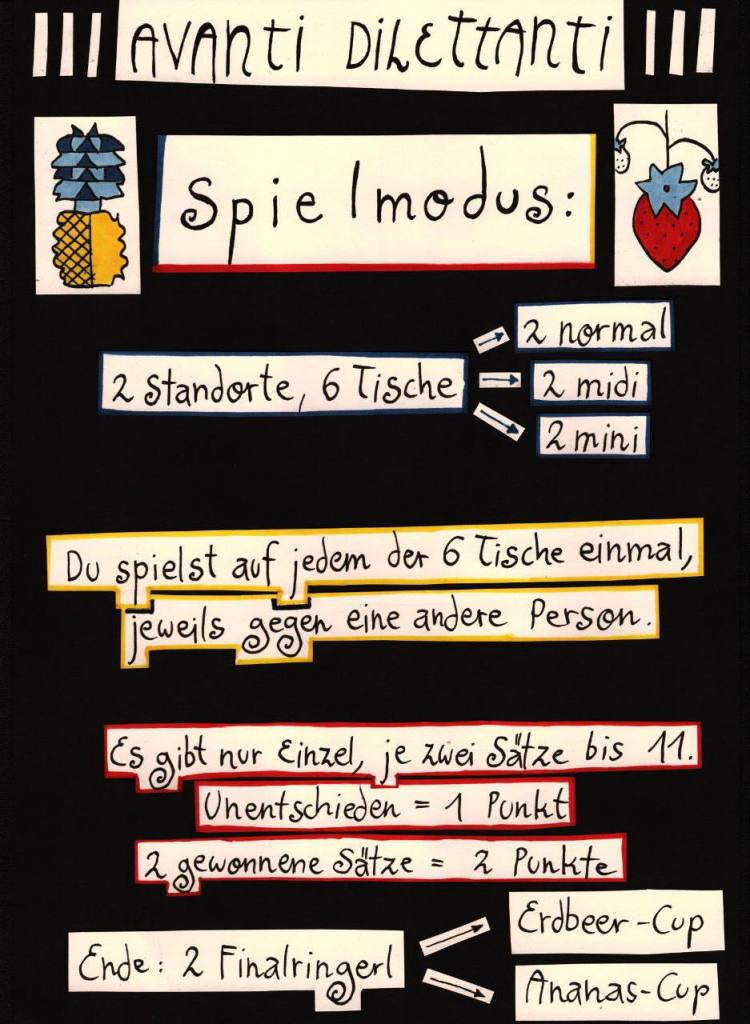 AVANTI DILETTANTI
Spielmodus:
2 Standorte, 6 Tische
2 normal
2 midi
2 mini
Du spielst auf jedem der 6 Tische einmal,
jeweils gegen eine andere Person.
Es gibt nur Einzel, je zwei Sätze bis 11.
Unentschieden = 1 Punkt
2 gewonnene Sätze = 2 Punkte
Ende: 2 Finalringerl
Erdbeer-Cup
Ananas-Cup